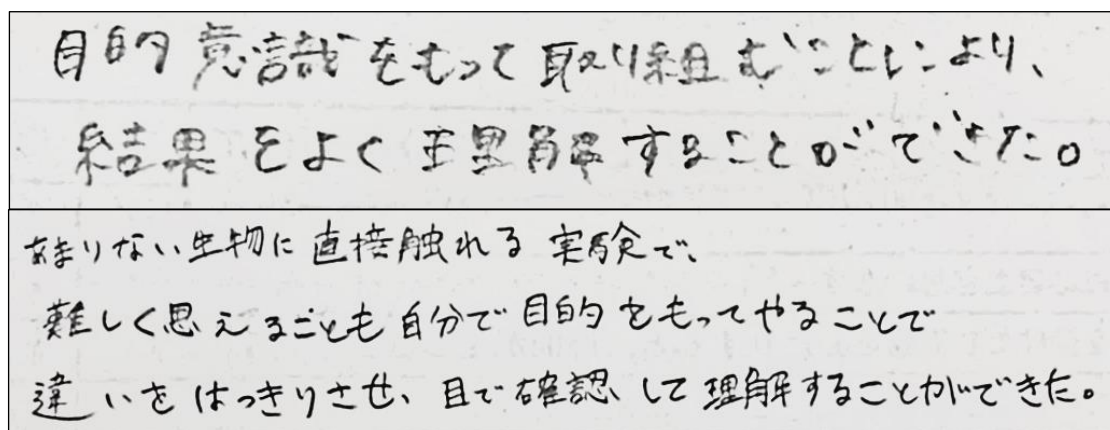 目的意識をもって取り組むことにより、
結果をよく理解することができた。
あまりない生物に直接触れる実験で、
難しく思えることも自分で目的をもってやることで
違いをはっきりさせ、目で確認して理解することができた。